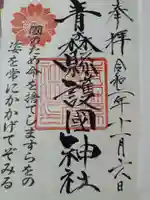 奉拝
令和二年十一月六日
青森縣護國神社
国のため命を捨てしますらをの
姿を常にかかげてぞみる